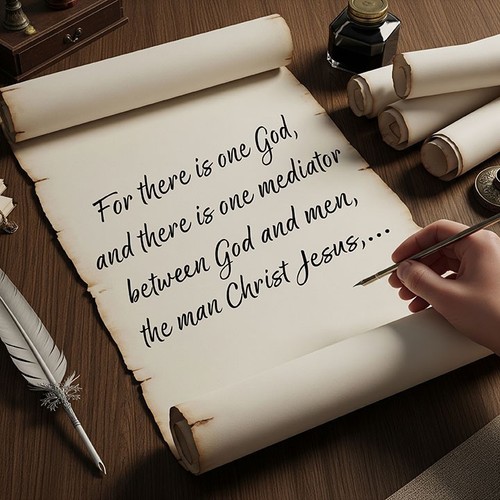 For there is one God,
and there is one mediator
between God and men,
the man Christ Jesus,...